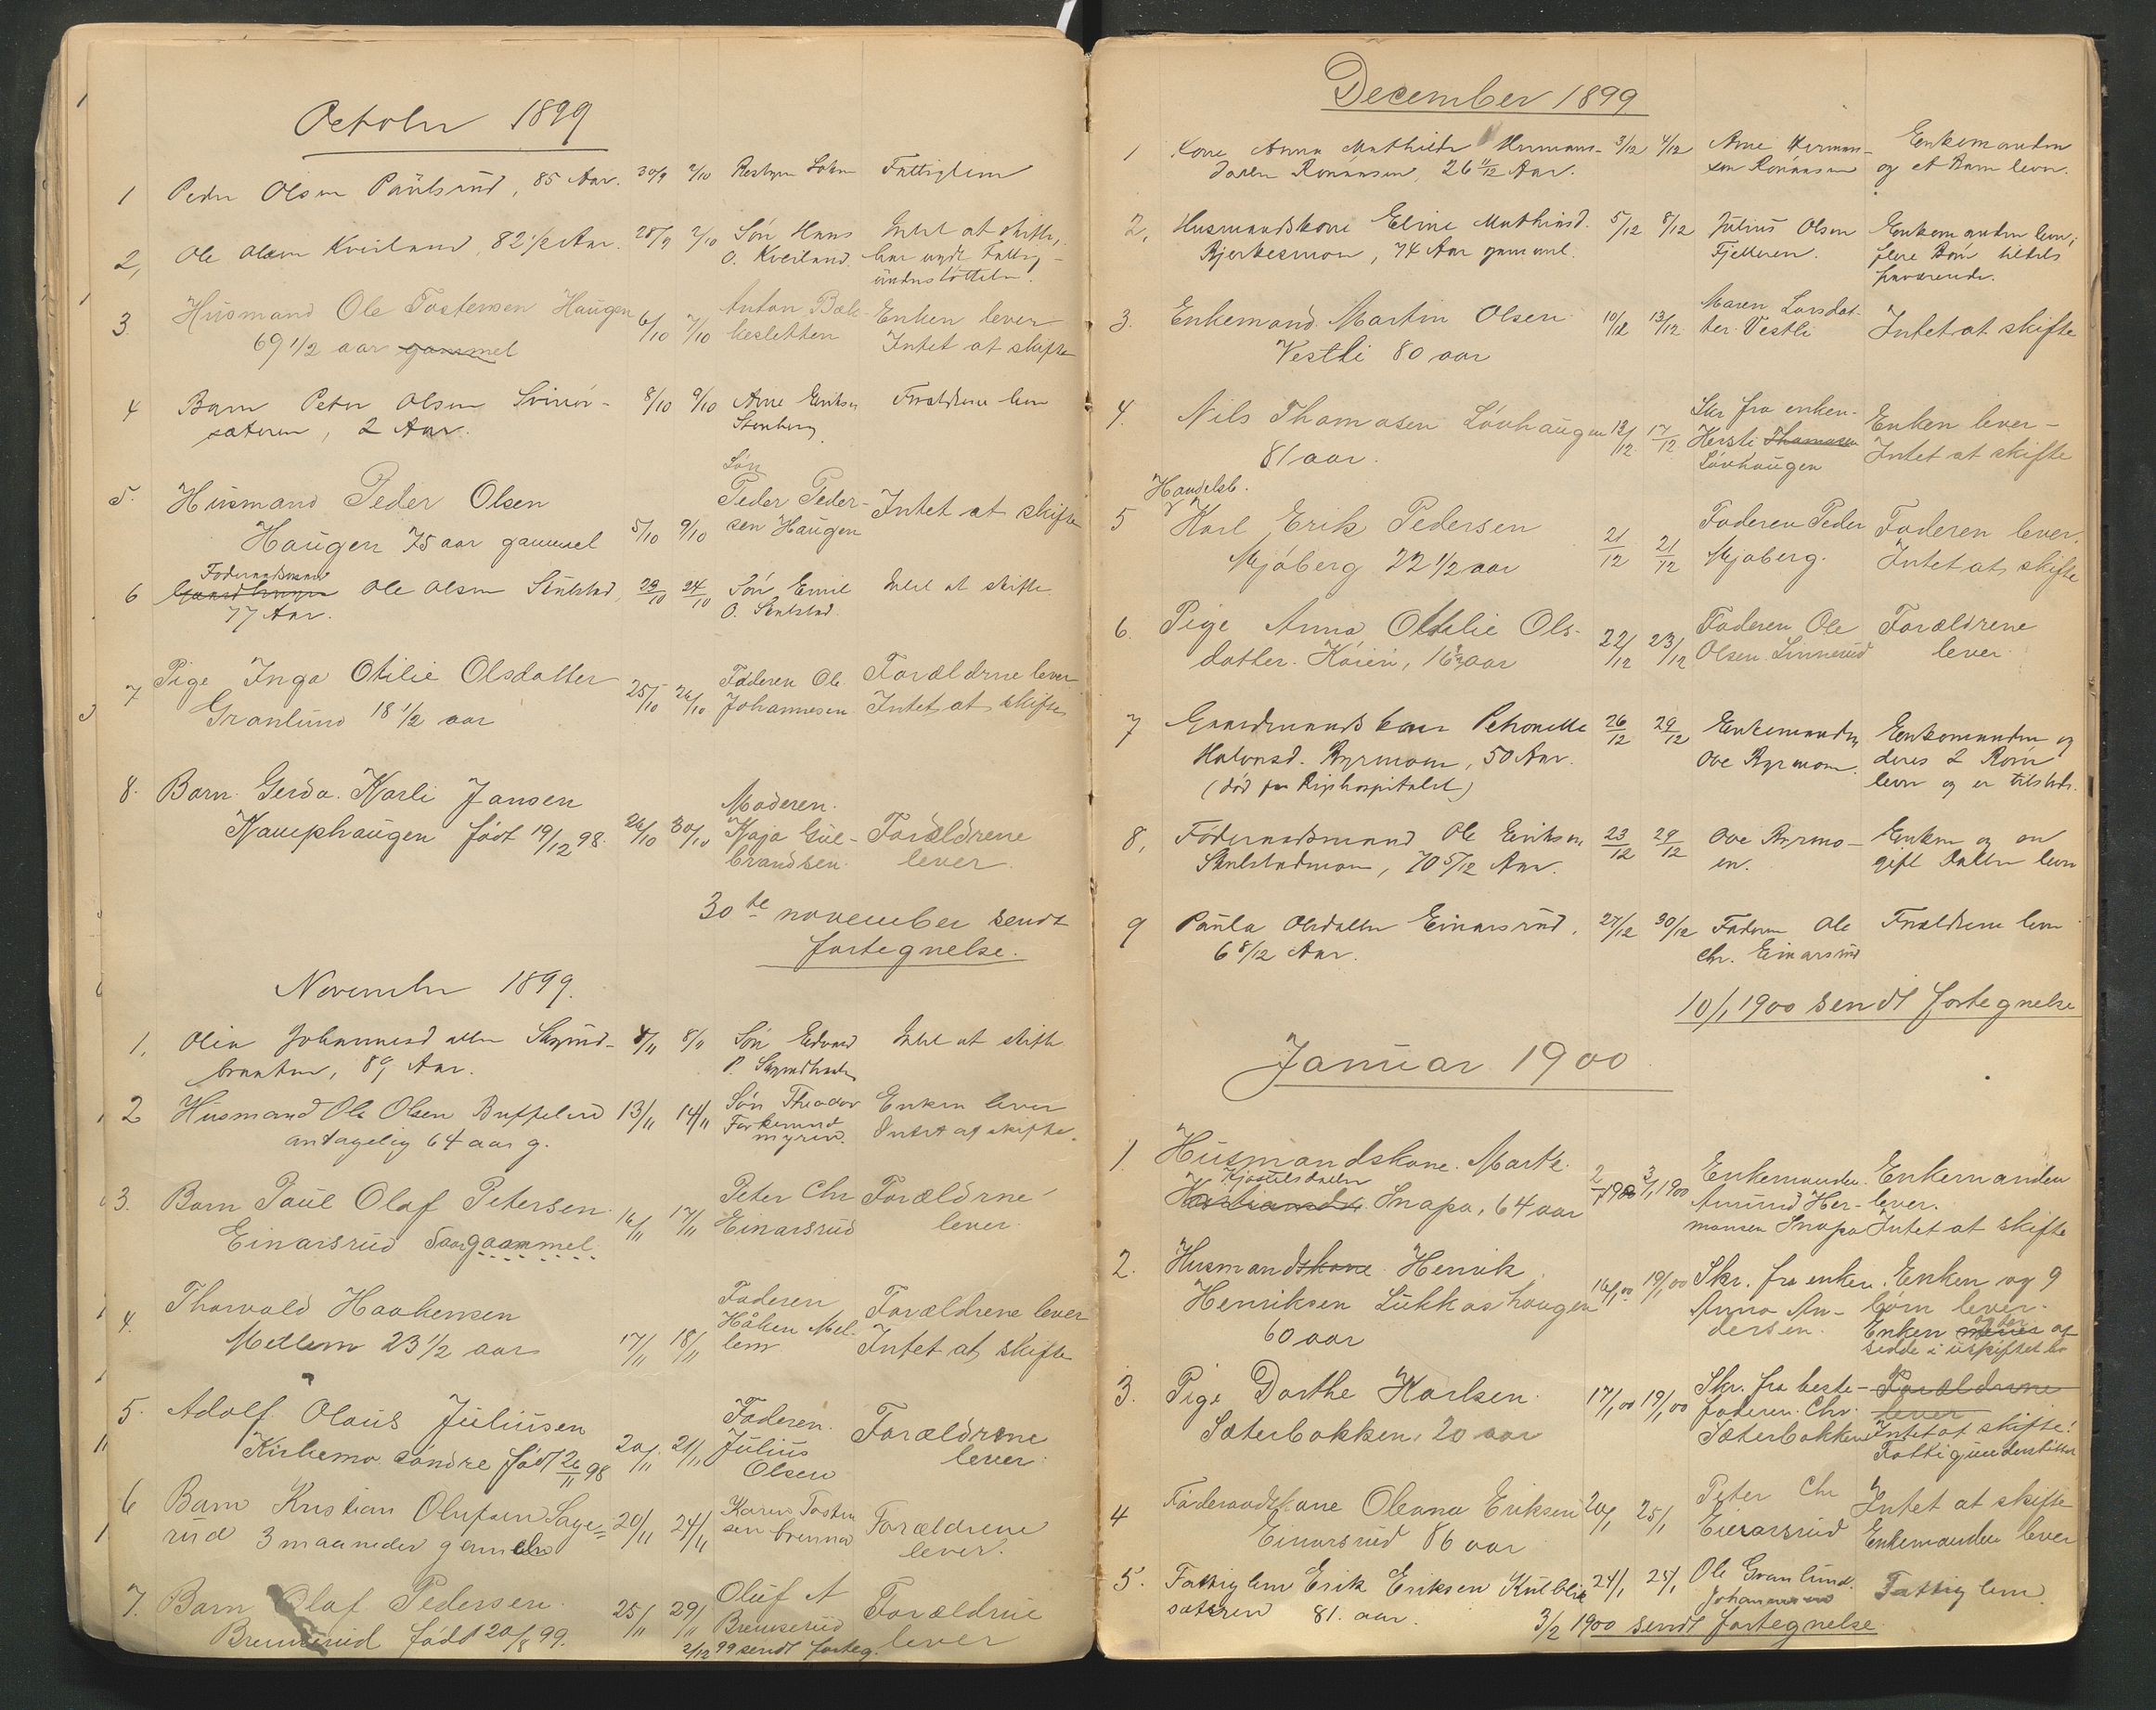 October 1899
1 Peder Olsen Paulsrud, 85 Aar. 30/9 2/10 Fattiglem
2, Ole Olsen Kveiland, 82 1/2 Aar. 28/9 2/10 Søn Hans Intet at skifte,
O. Kveiland. har nydt Fattig-
understøttelse.
3 Husmand Ole Tostensen Haugen 6/10 7/10 Anton Bak- Enken lever
69 1/2 aar gammel kesletten Intet at skifte
4 Barn Peter Olsen 8/10 9/10 Arne Eriksen Forældrene lever
sæteren, 2 Aar. Stenberg.
Søn
5. Husmand Peder Olsen Peder Peder- Intet at skifte
Haugen 75 aar gammel 5/10 9/10 sen Haugen
Føderaadsmand
6 Ole Olsen Skulstad, 23/10 24/10 Søn Emil Intet at skifte.
77 Aar. O. Skulstad.
7 Pige Inga Otilie Olsdatter 25/10 26/10 Faderen Ole Forældrne lever
Granlund 18 1/2 aar Johannesen Intet at skifte
8. Barn Gerda Karli Jansen Moderen
Kamphaugen født 19/12 98. 26/10 30/10 Kaja Gul- Forældrene
brandsen. lever.
30te november sendt
fortegnelse.
November 1899.
1, Olia Johannesdatter Skgrud- 4/11 8/11 Søn Edvard Intet at skifte
braaten, 89 Aar. P.
2 Husmand Ole Olsen Buffelrud 13/11 14/11 Søn Theodor Enken lever
antagelig 64 aar g. myren. Intet at skifte.
3. Barn Paul Olaf Petersen 16/11 17/11 Peter Chr Forældrne
Einarsrud 5 aar gammel Einarsrud lever.
4. Thorvald Haakensen Faderen Forældrene lever
Mellem 23 1/2 aar 17/11 18/11 Håken Mel- Intet at skifte
lem
5. Adolf Olaus Juliusen Faderen Forældrene
Kirkemo søndre født 26/11 98 20/11 21/11 Julius lever.
Olsen
6 Barn Kristian Olufsen Sage- 20/11 24/11 Karen Tosten Forældrene
rud 3 maaneder gammel sen brenna lever.
7. Barn Olaf Pedersen 25/11 29/11 Oluf A Forældrne
Brenserud født 20/8 99. Brenserud lever
2/12 99 sendt forteg.
December 1899
1 Kone Anna Mathilde Hermans- 3/12 4/12 Arne Herman- Enkemanden
datter Rønaasen, 26 11/12 Aar. sen Rønaasen og et Barn lever.
2, Husmandskone Eline Mathiasd. 5/12 8/12 Julius Olsen Enkemanden lever;
Bjerkesmoen, 74 Aar gammel. Fjelleren. flere Børn tildels
fraværende.
3. Enkemand Martin Olsen 10/12 13/12 Maren Larsdat- Intet at skifte
Vestli 80 aar ter Vestli
4. Nils Thomasen Løvhaugen 13/12 17/12 Skr fra enken. Enken lever-
81 aar. Kersti Thomasen Intet at skifte
Løvhaugen
Handelsb.
5 Karl Erik Pedersen 21/12 21/12 Faderen Peder Faderen lever.
Mjøberg 22 1/2 aar Mjøberg. Intet at skifte
6. Pige Anna Otilie Ols- 22/12 23/12 Faderen Ole Forældrene
datter Køien, 16 aar Olsen Linnerud lever.
7 Gaardmandskone Petronelle 26/12 29/12 Enkemanden Enkemanden og
Halvorsd. Byrmoen, 50 Aar. Ove Byrmoen. deres 2 Børn
(død paa Rigshospitalet) lever og er tilstede.
8, Føderaadsmand Ole Eriksen 23/12 29/12 Ove Byrmo- Enken og en
Skulstadmoen, 70 5/12 Aar. en. gift Datter lever
9 Paula Olsdatter Einarsrud, 27/12 30/12 Faderen Ole Forældrene lever
6 8/12 Aar. Chr. Einarsrud
10/1 1900 sendt fortegnelse
Januar 1900
1. Husmandskone Marte 2/1 1900 3/1 1900 Enkemanden Enkemanden
Kjøstelsdatter Snapa, 64 aar Amund Her- lever.
mansen Snapa Intet at skifte
2. Husmandskone Henrik 16/1 00 19/1 00 Skr. fra enken Enken og 9
Henriksen Lukkashaugen Anna An- børn lever.
60 aar dersen. Enken agter at
sidde i uskiftet bo
3. Pige Dorthe Karlsen 17/1 00 19/1 00 Skr. fra beste- Forældrene
Sæterbakken, 20 aar faderen Chr. lever
Sæterbakken Intet at skifte!
Fattigunderstøttet
4 Føderaadskone Oleana Eriksen 20/1 25/1 Peter Chr Intet at skifte
Einarsrud 86 aar Einarsrud Enkemanden lever
5. Fattiglem Erik Eriksen Kulblik 24/1 25/1 Ole Granlund. Fattiglem.
sæteren 81. aar. Johannesen
3/2 1900 sendt fortegnelse